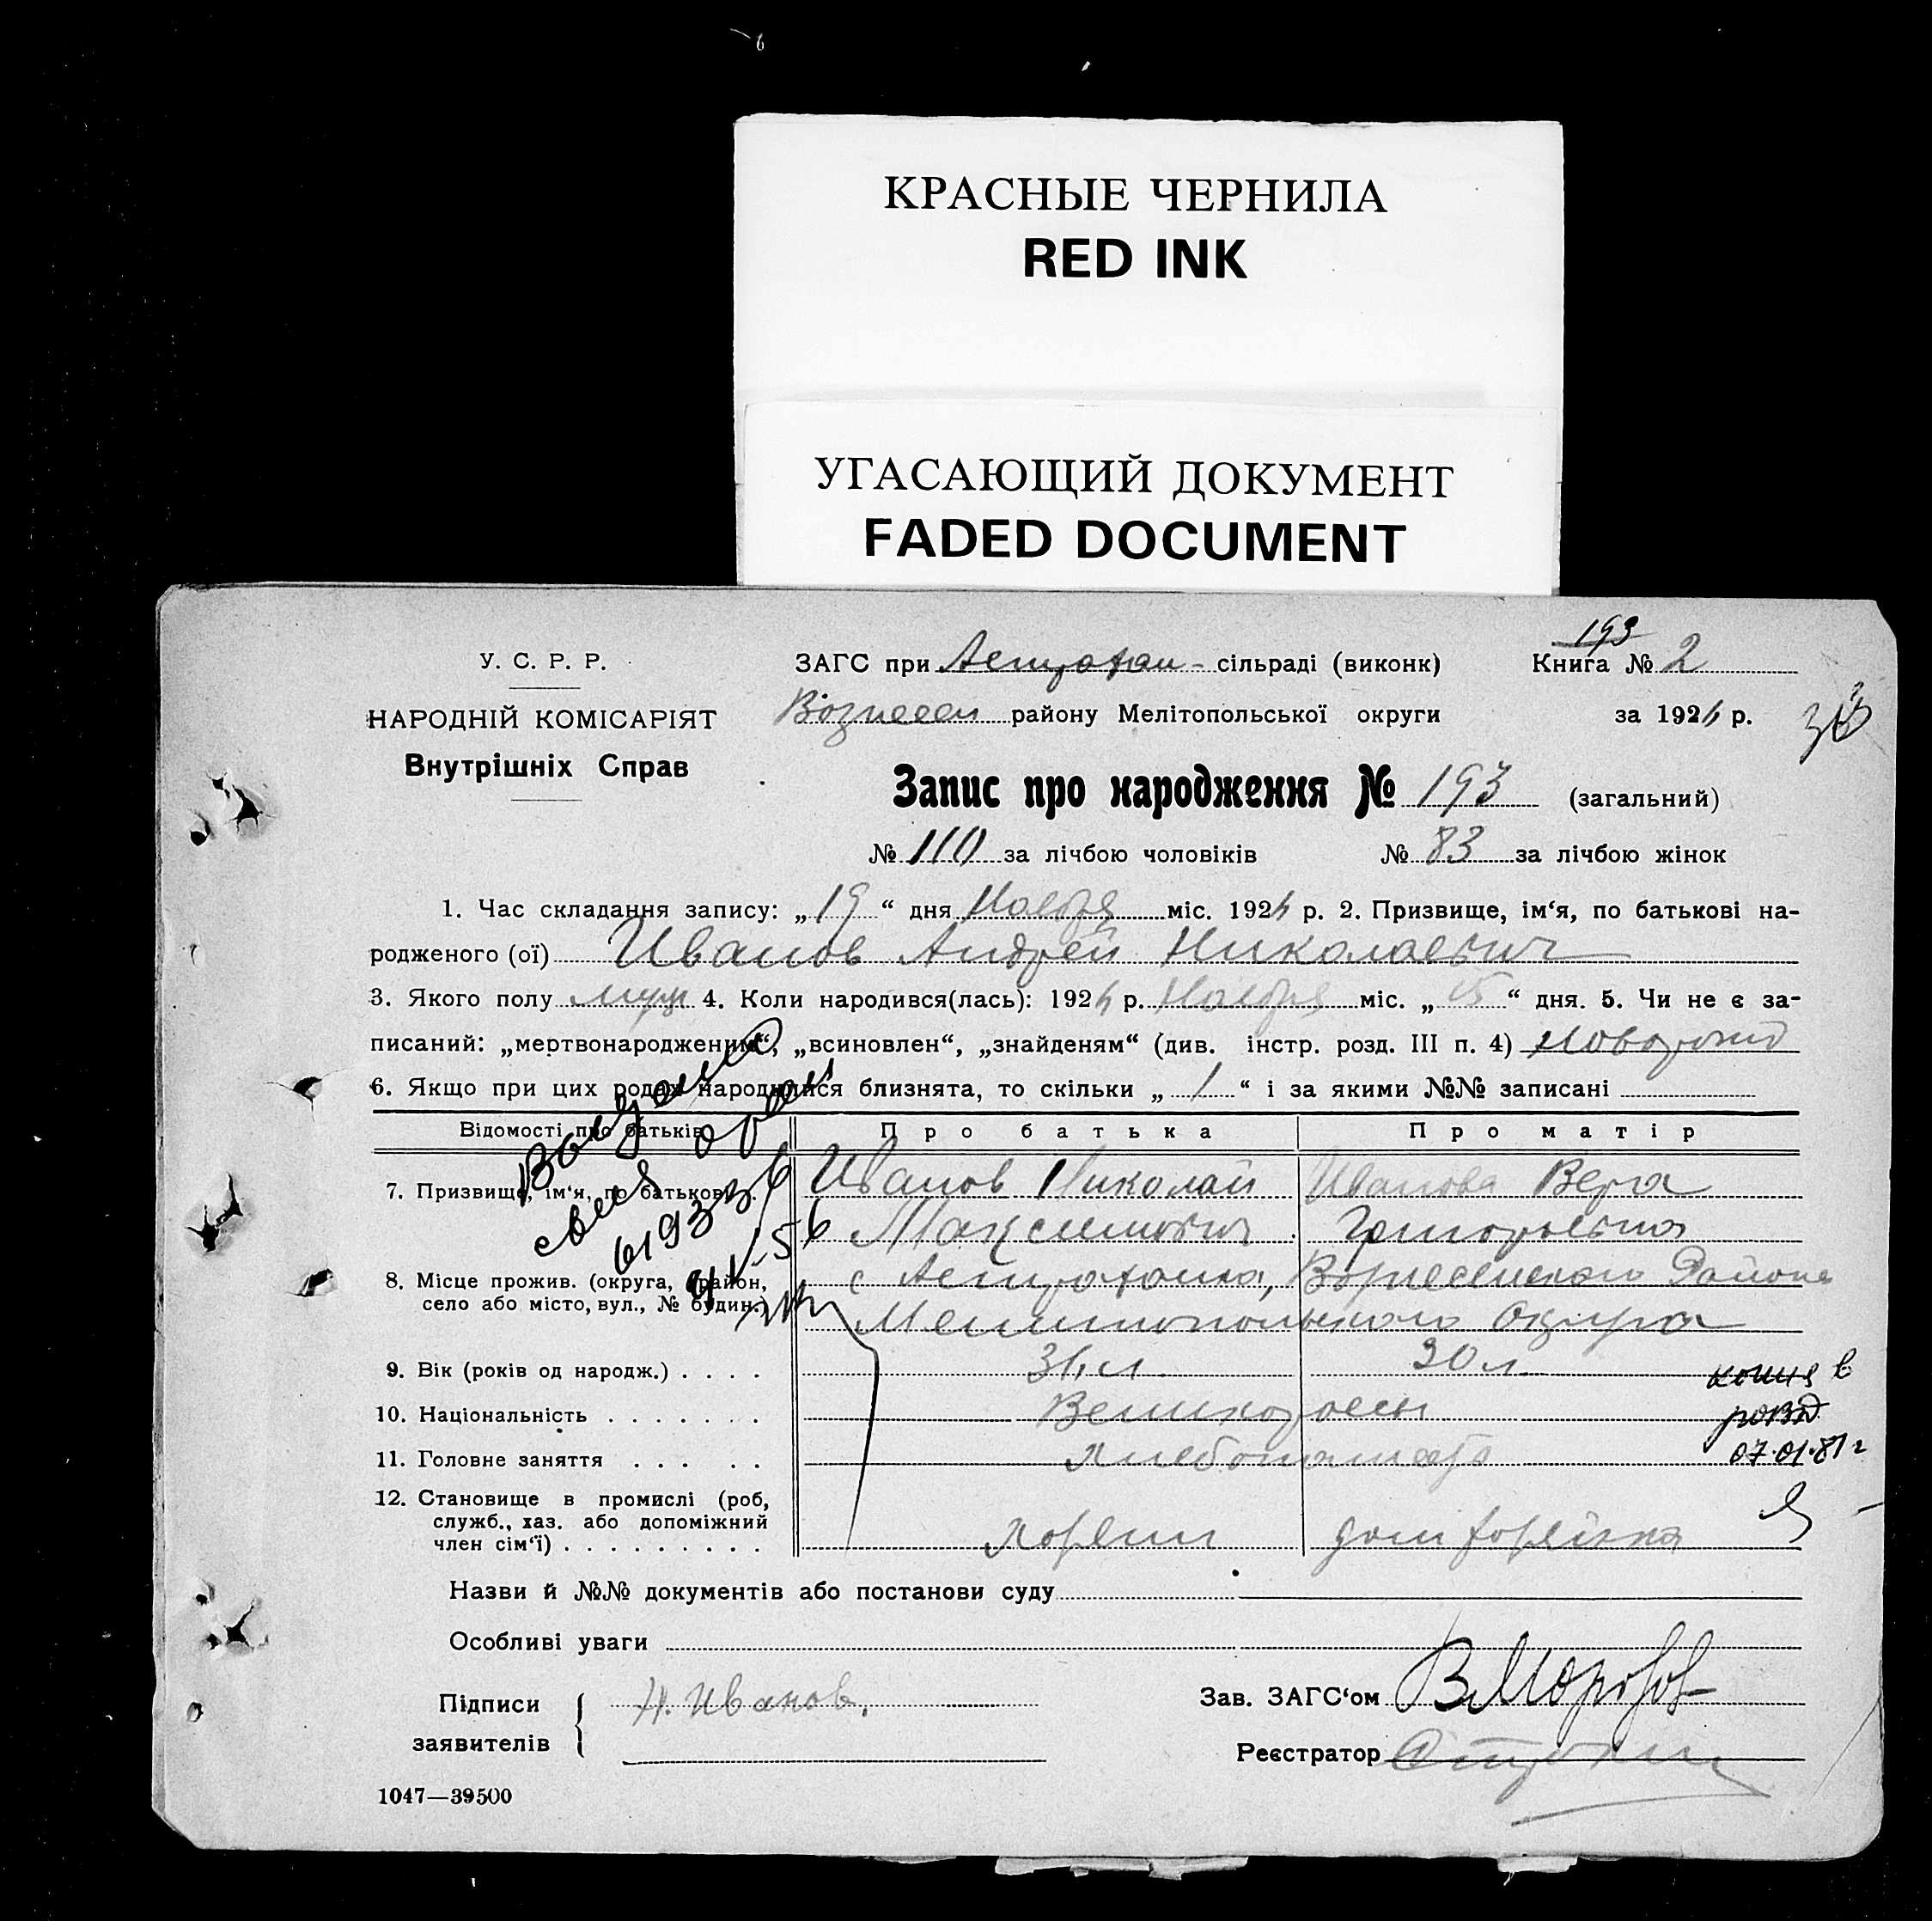 КРАСНЫЕ ЧЕРНИЛА
RED INK
УГАСАЮЩИЙ ДОКУМЕНТ
FADED DOCUMENT
193
У. С. Р. Р.
ЗАГС при Астрахан- сільраді (виконк)
Книга № 2
НАРОДНІЙ КОМІСАРІЯТ
Вознесен району Мелітопольської округи
за 192 р.
Внутрішніх Справ
Запис про народження № 193 (загальний)
№ 110 за лічбою чоловіків № 83 за лічбою жінок
1. Час складання запису: „ 19 “ дня Ноября міс. 192 р. 2. Призвище, ім‘я, по батькові на-
родженого (ої) Иванов Андрей Николаевич
3. Якого полу муж 4. Коли народився(лась): 192 р. Ноября міс. „ 15 “ дня. 5. Чи не є за-
писаний: „мертвонародженим“, „всиновлен“, „знайденям“ (див. інстр. розд. III п. 4)
6. Якщо при цих родах народилися близнята, то скільки „ 1 “ і за якими №№ записані
Відомості про батьків
Про батька
Про матір
7. Призвище, ім‘я, по батькові
Иванов Николай
Иванова Вера
Максимович
Григорьевна
8. Місце прожив. (округа, район,
село або місто, вул., № будин.)
с Астраханка, Вознесенского Района
Мелитопольского Округа
9. Вік (років од народж.) . . . .
30 л
10. Національність . . . . . . .
Великороссы
11. Головне заняття . . . . .
хлебопашество
12. Становище в промислі (роб,
служб., хаз. або допоміжний
член сім‘ї) . . . . . . . . .
хозяин
дом хозяйка
копия в
РОВД
07.01.81 г
Назви й №№ документів або постанови суду
Особливі уваги
Підписи
заявителів
Н. Иванов.
Зав. ЗАГС‘ом В Морозов
Реєстратор
1047—39500